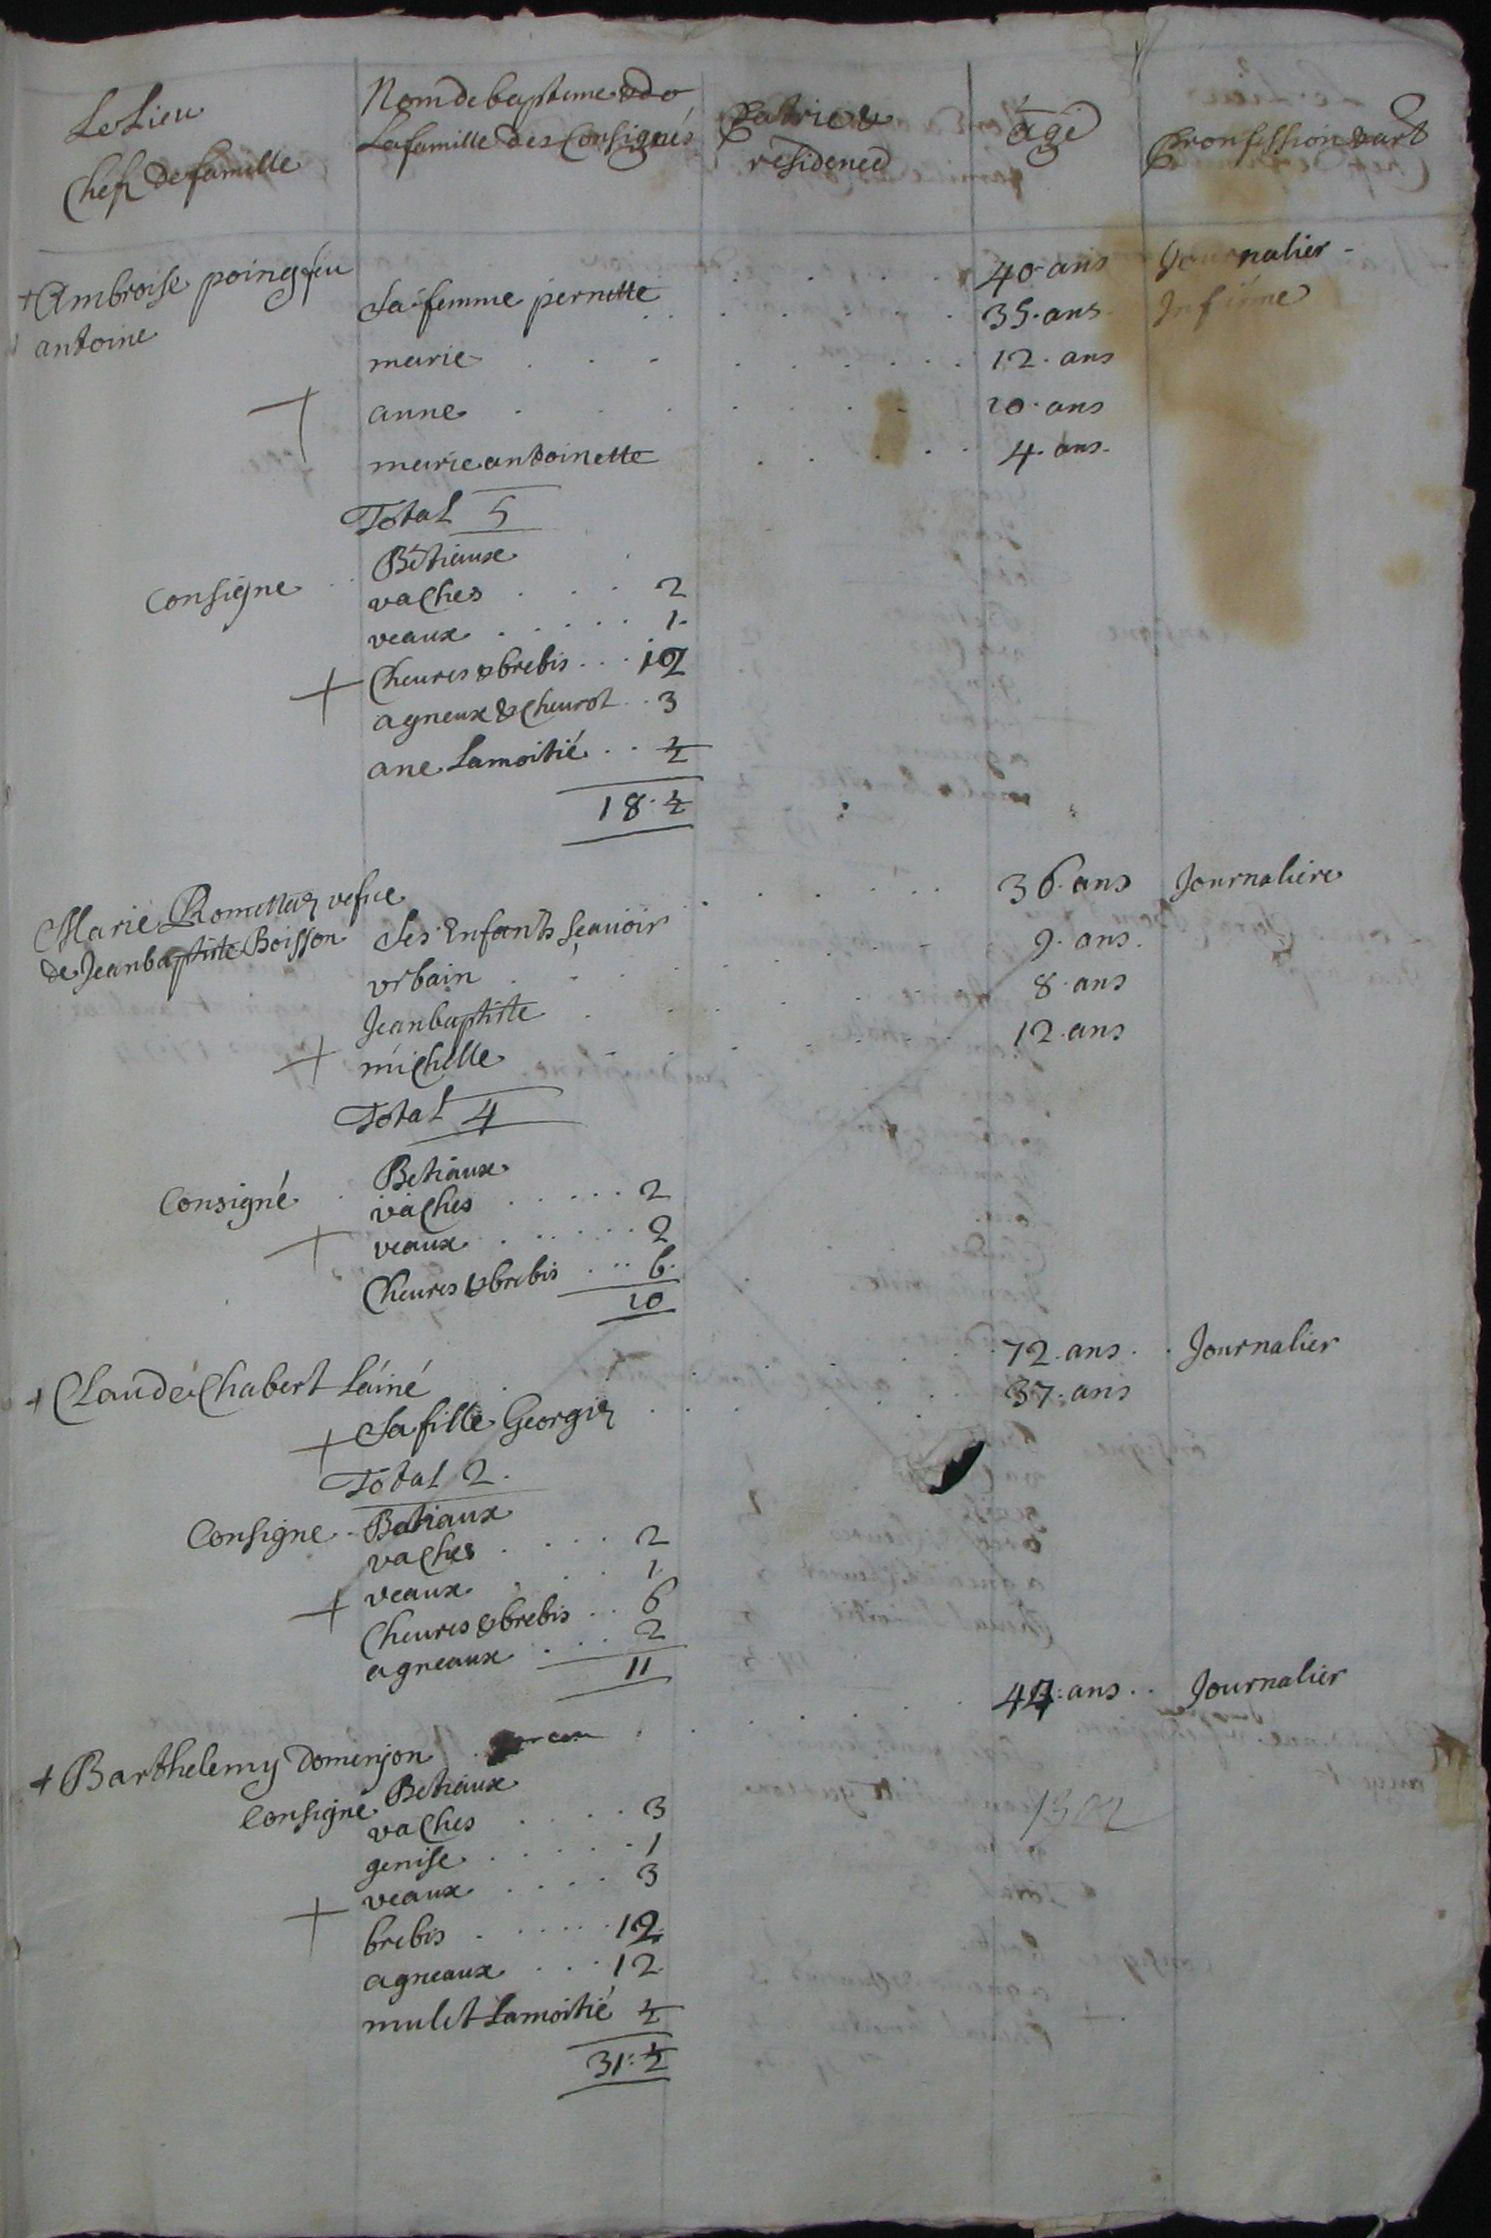 Le Lieu
Chefs De famille
Nom De bapteme & de
La famille Des Consignés
Patrie &
residence
âge
Pronfession & art
+ Ambroise poing feu
antoine
40 ans
Journalier -
Sa femme pernette
35. ans
Infirme
marie
12. ans
anne
10. ans
marie antoinette
4. ans.
Total 5
Consigne
Bêtiaux
vaches 2
veaux 1.
+ Cheures & brebis 12
agneux & Cheurot 3
ane Lamoitié ½
18. ½
Marie vefue
De Jean baptiste Boisson
36. ans
Journaliere
Ses Enfants Seauoir
vrbain
9. ans.
Jean baptiste
8. ans
+ michelle
12. ans
Total 4
Consigné
Betiaux
vaches 2
+ veaux 2
Cheures & brebis 6.
10
+ Claude Chabert Láiné
72. ans
Journalier
+ Sa fille Georgie
37. ans
Total 2.
Consigne
Betiaux
vaches 2
+ veaux 1
Cheures & brebis 6
agneaux 2
11
+ Barthelemy Domenjon
ans
Journalier
Consigné
Betiaux
vaches 3
genise 1
+ veaux 3
brebis 12
agneaux 12
mulet Lamoitié ½
31. ½
1302